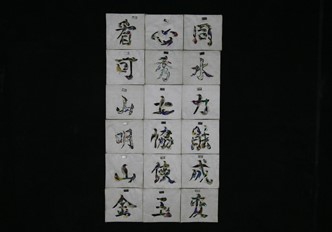 看心同
可秀水
山土力
明協能
山使成
金玉变